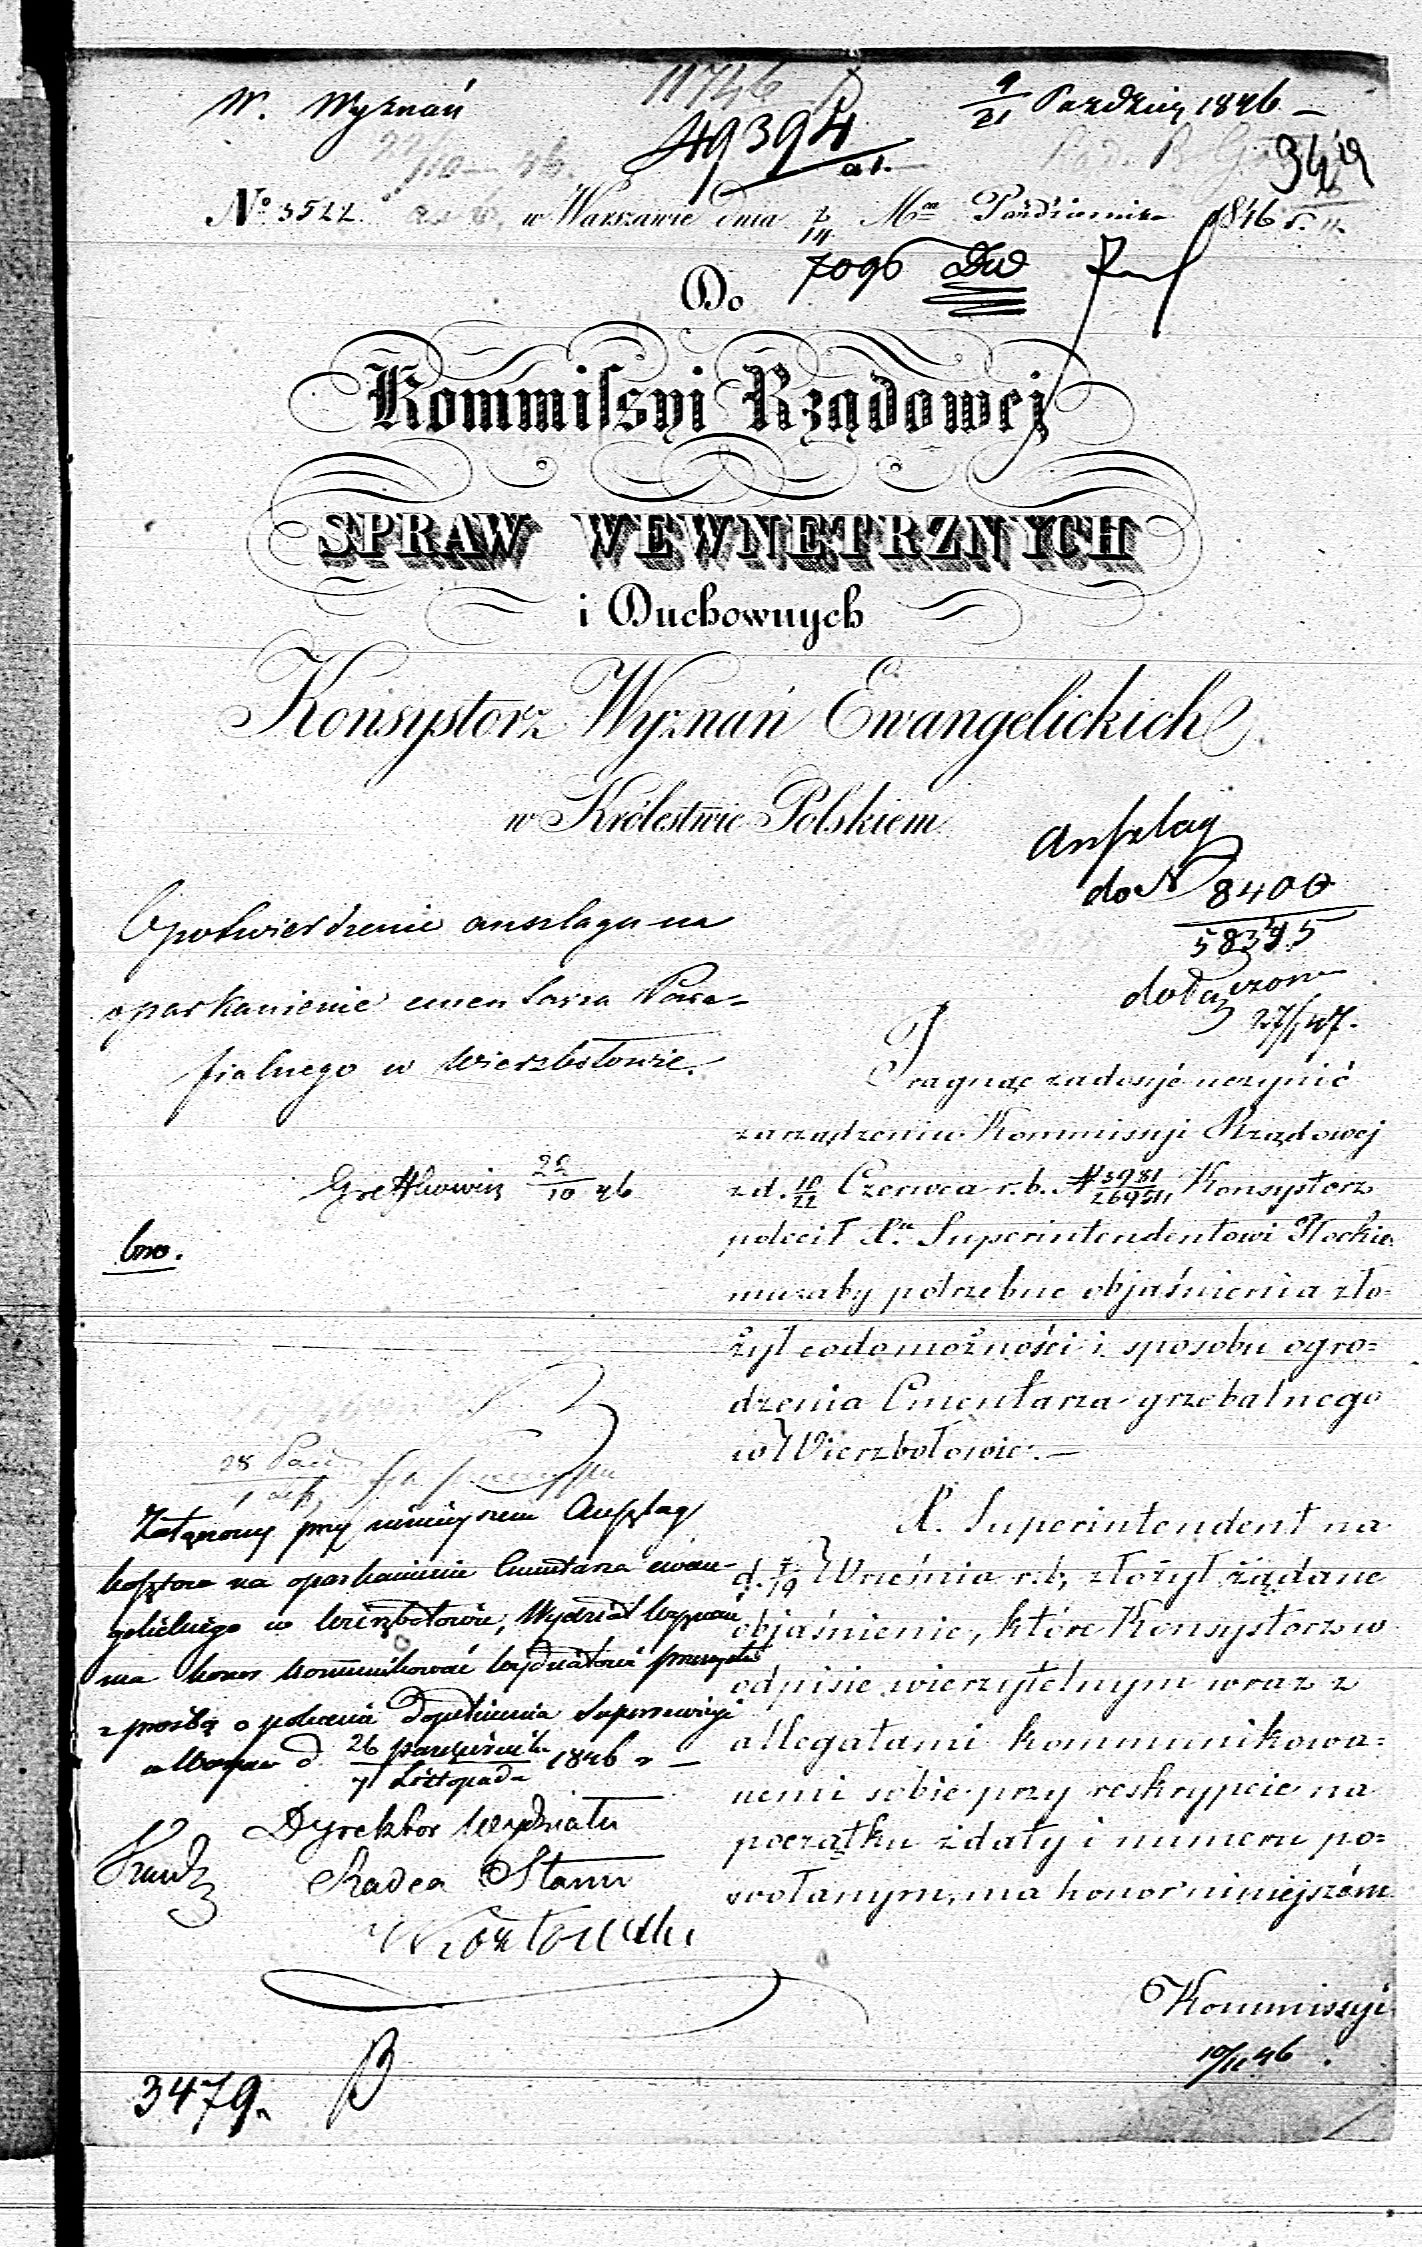 W. Wyznań
11746
49394
9/21 Paździer 1846 –
22/10 46.
No 3522. w Warszawie dnia 2/14 Mca Października 1846 r.
7096
Do
Kommissyi Rządowej
SPRAW WEWNĘTRZNYCH
i Duchownych
Konsystorz Wyznań Ewangelickich
w Królestwie Polskiem
Anszlag
do N 8400
58345
dołączono
27/1 47.
O potwierdzenie anszlagu na
oparkanienie cmentarza Para=
fialnego w Wierzbołowie.
26/10 46
Pragnąc zadosyć uczynić
zarządzeniu Kommissyi Rządowej
z d. 10/22 Czerwca r. b. N 3981/26951, Konsystorz
polecił X. Superintendentowi Płockie=
mu zaby potrzebne objaśnienia zło=
żył co do możności i sposobu ogro=
dzenia Cmentarza grzebalnego
w Wierzbołowie. –
X. Superintendent na
d. 7/19 Września r. b. złożył żądane
objaśnienie, które Konsystorz w
odpisie wierzytelnym wraz z
allegatami kommunikowa=
nemi sobie przy reskrypcie na
początku z daty i numeru po=
wołanym, ma honor niniejszém
Kommissyi
10/11 46.
Załączony przy niniejszem Anszlag
kosztów na oparkanienie Cmentarza ewan=
gelickiego w Wierzbołowie, Wydział Wyznań
ma honor kommunikować Wydziałowi Przemysłu
z prośbą o polecenie dopełnienia Superrewizyi
d. 26 Października/7 Listopada 1846 r –
Dyrektor Wydziału
Radca Stanu
3479.
B